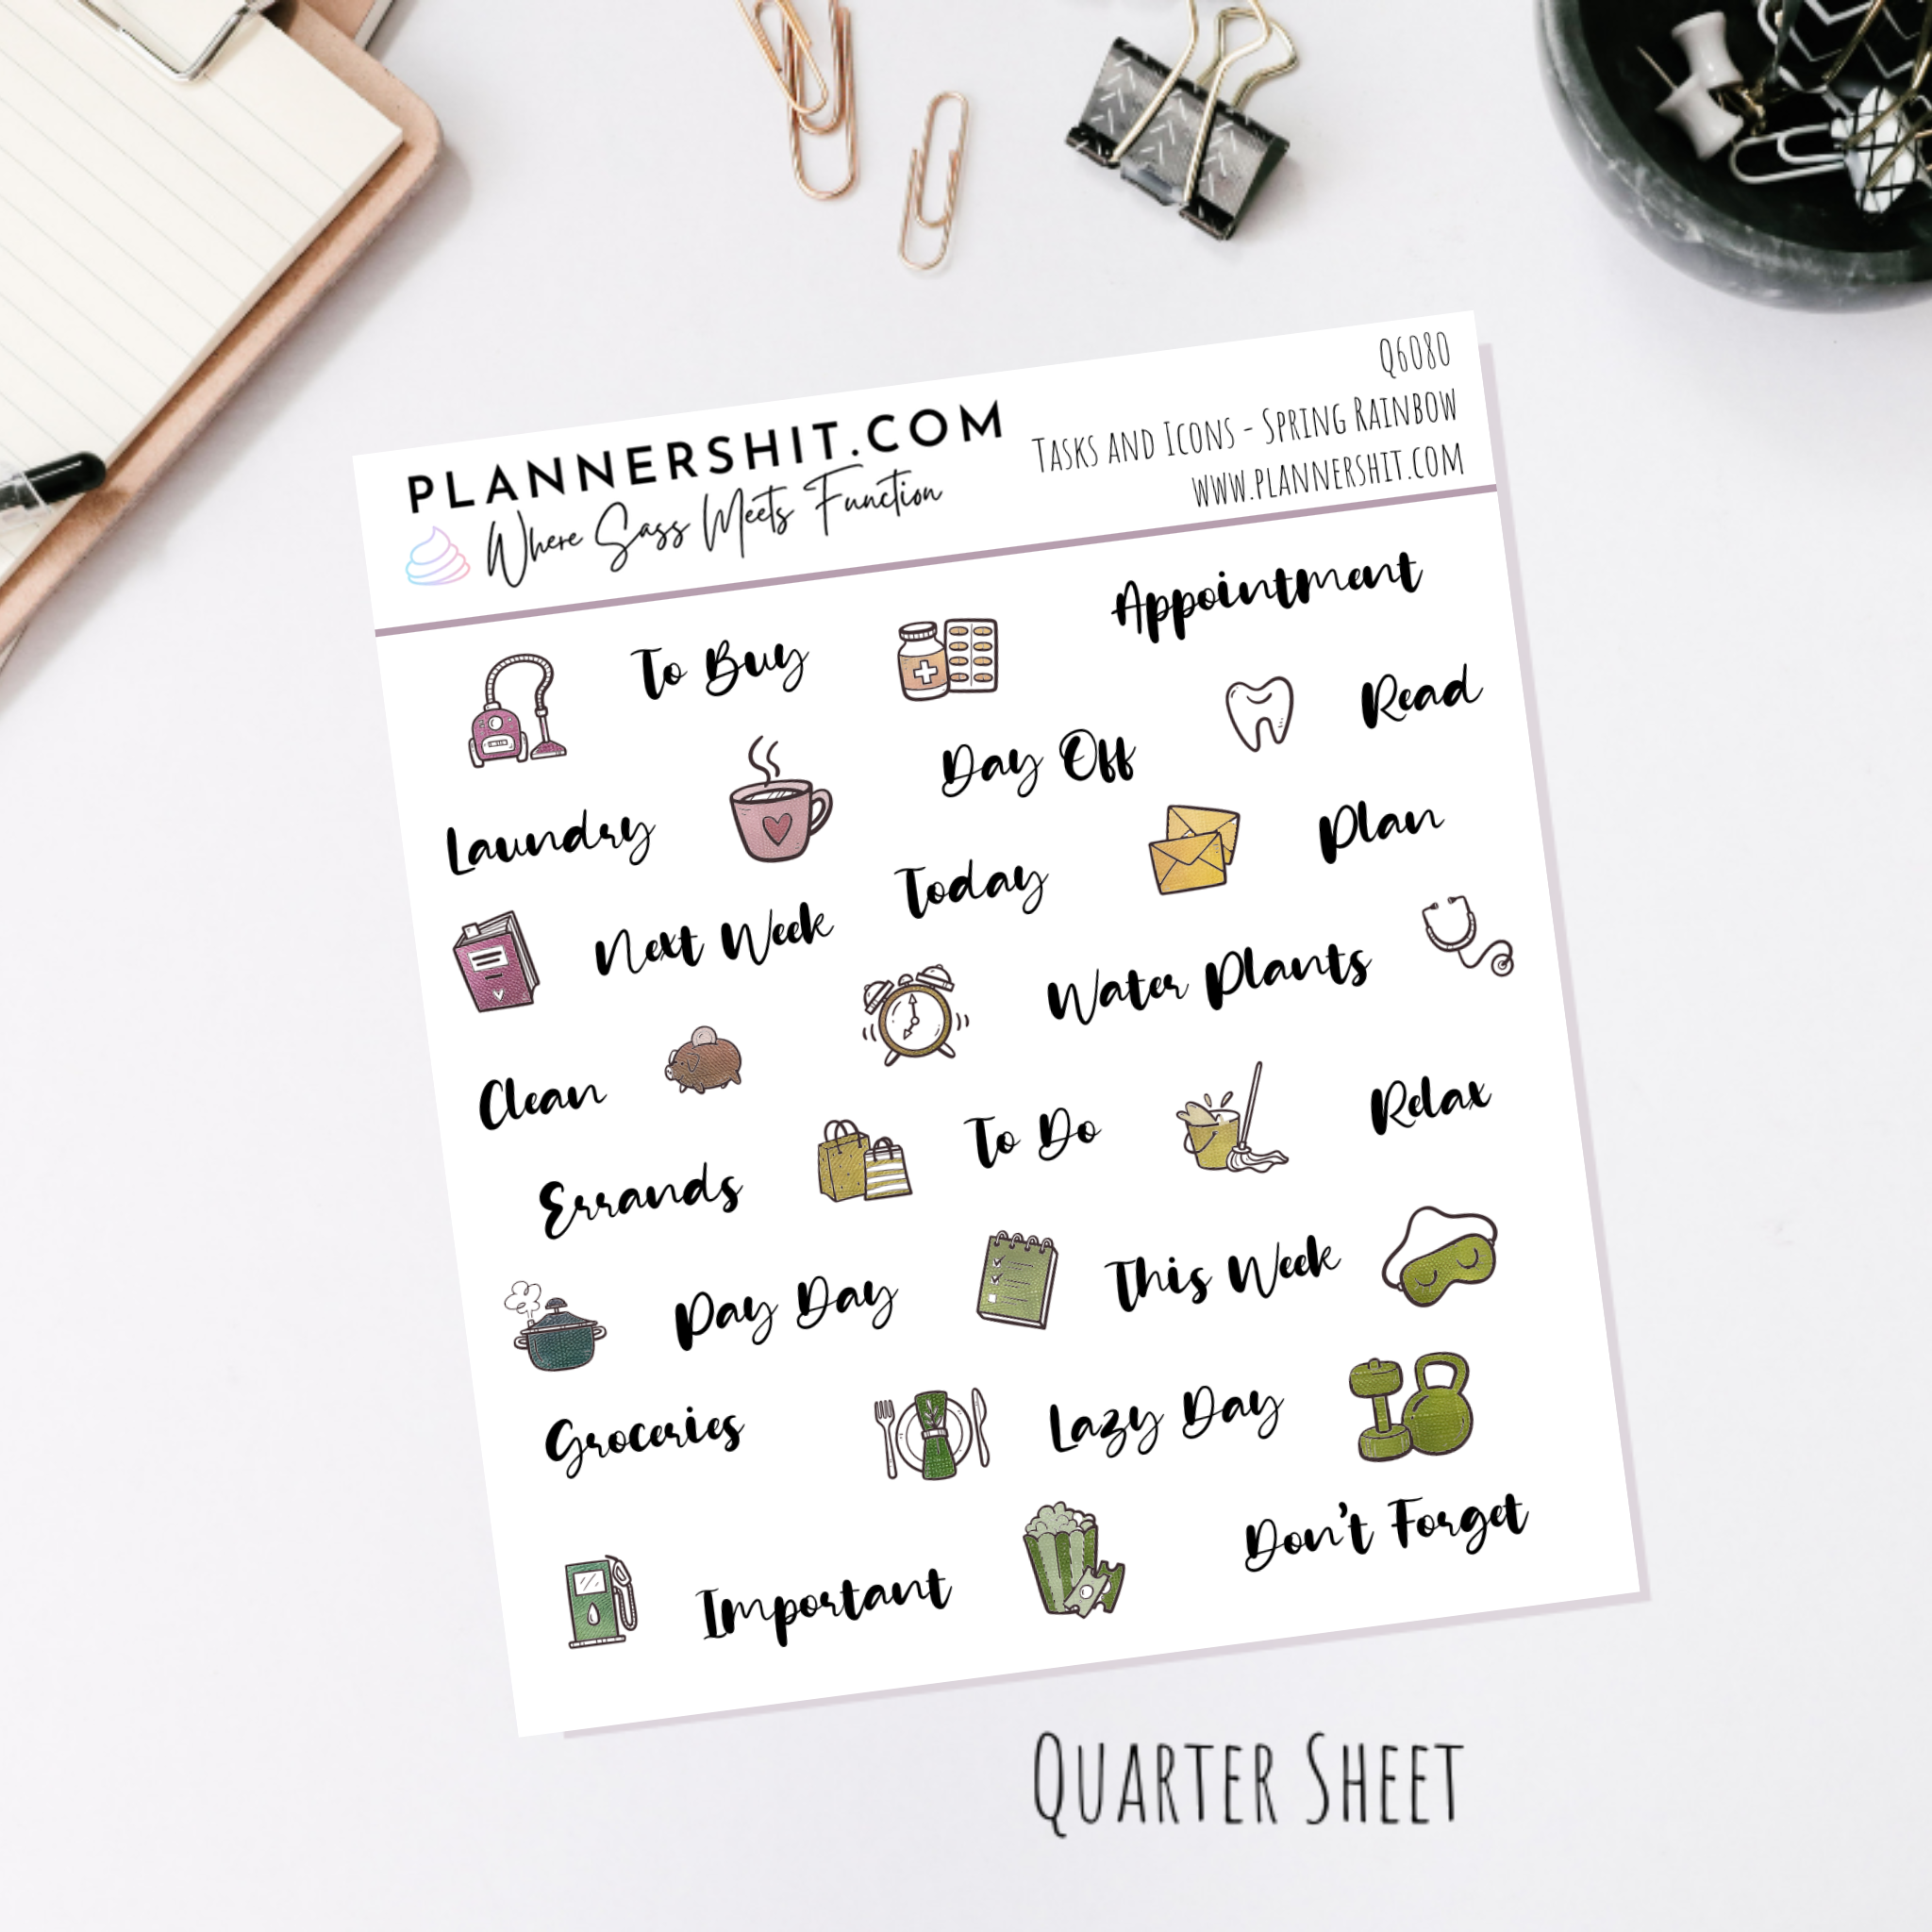 PLANNERSHIT.COM
Where Sass Meets Function
Q6080
Tasks and Icons - Spring Rainbow
www.plannershit.com
To Buy
Appointment
Read
Day Off
Laundry
Plan
Today
Next Week
Water Plants
Clean
To Do
Relax
Errands
This Week
Pay Day
Lazy Day
Groceries
Don't Forget
Important
Quarter Sheet